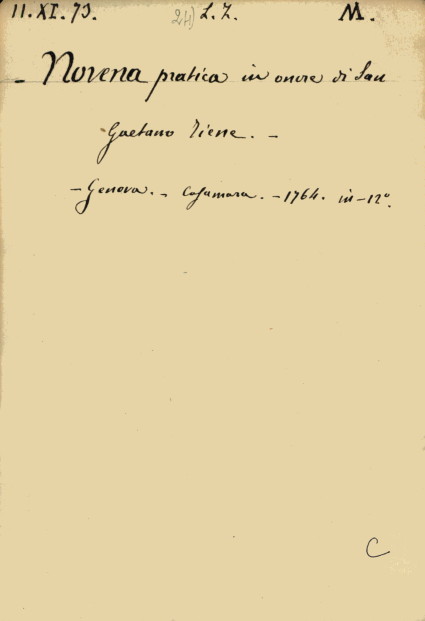 11.XI.73. 24) L.Z. M.
- Novena pratica in onore di San
Gaetano Tiene. -
- Genova. - Casamara. - 1764. in-12°.
C